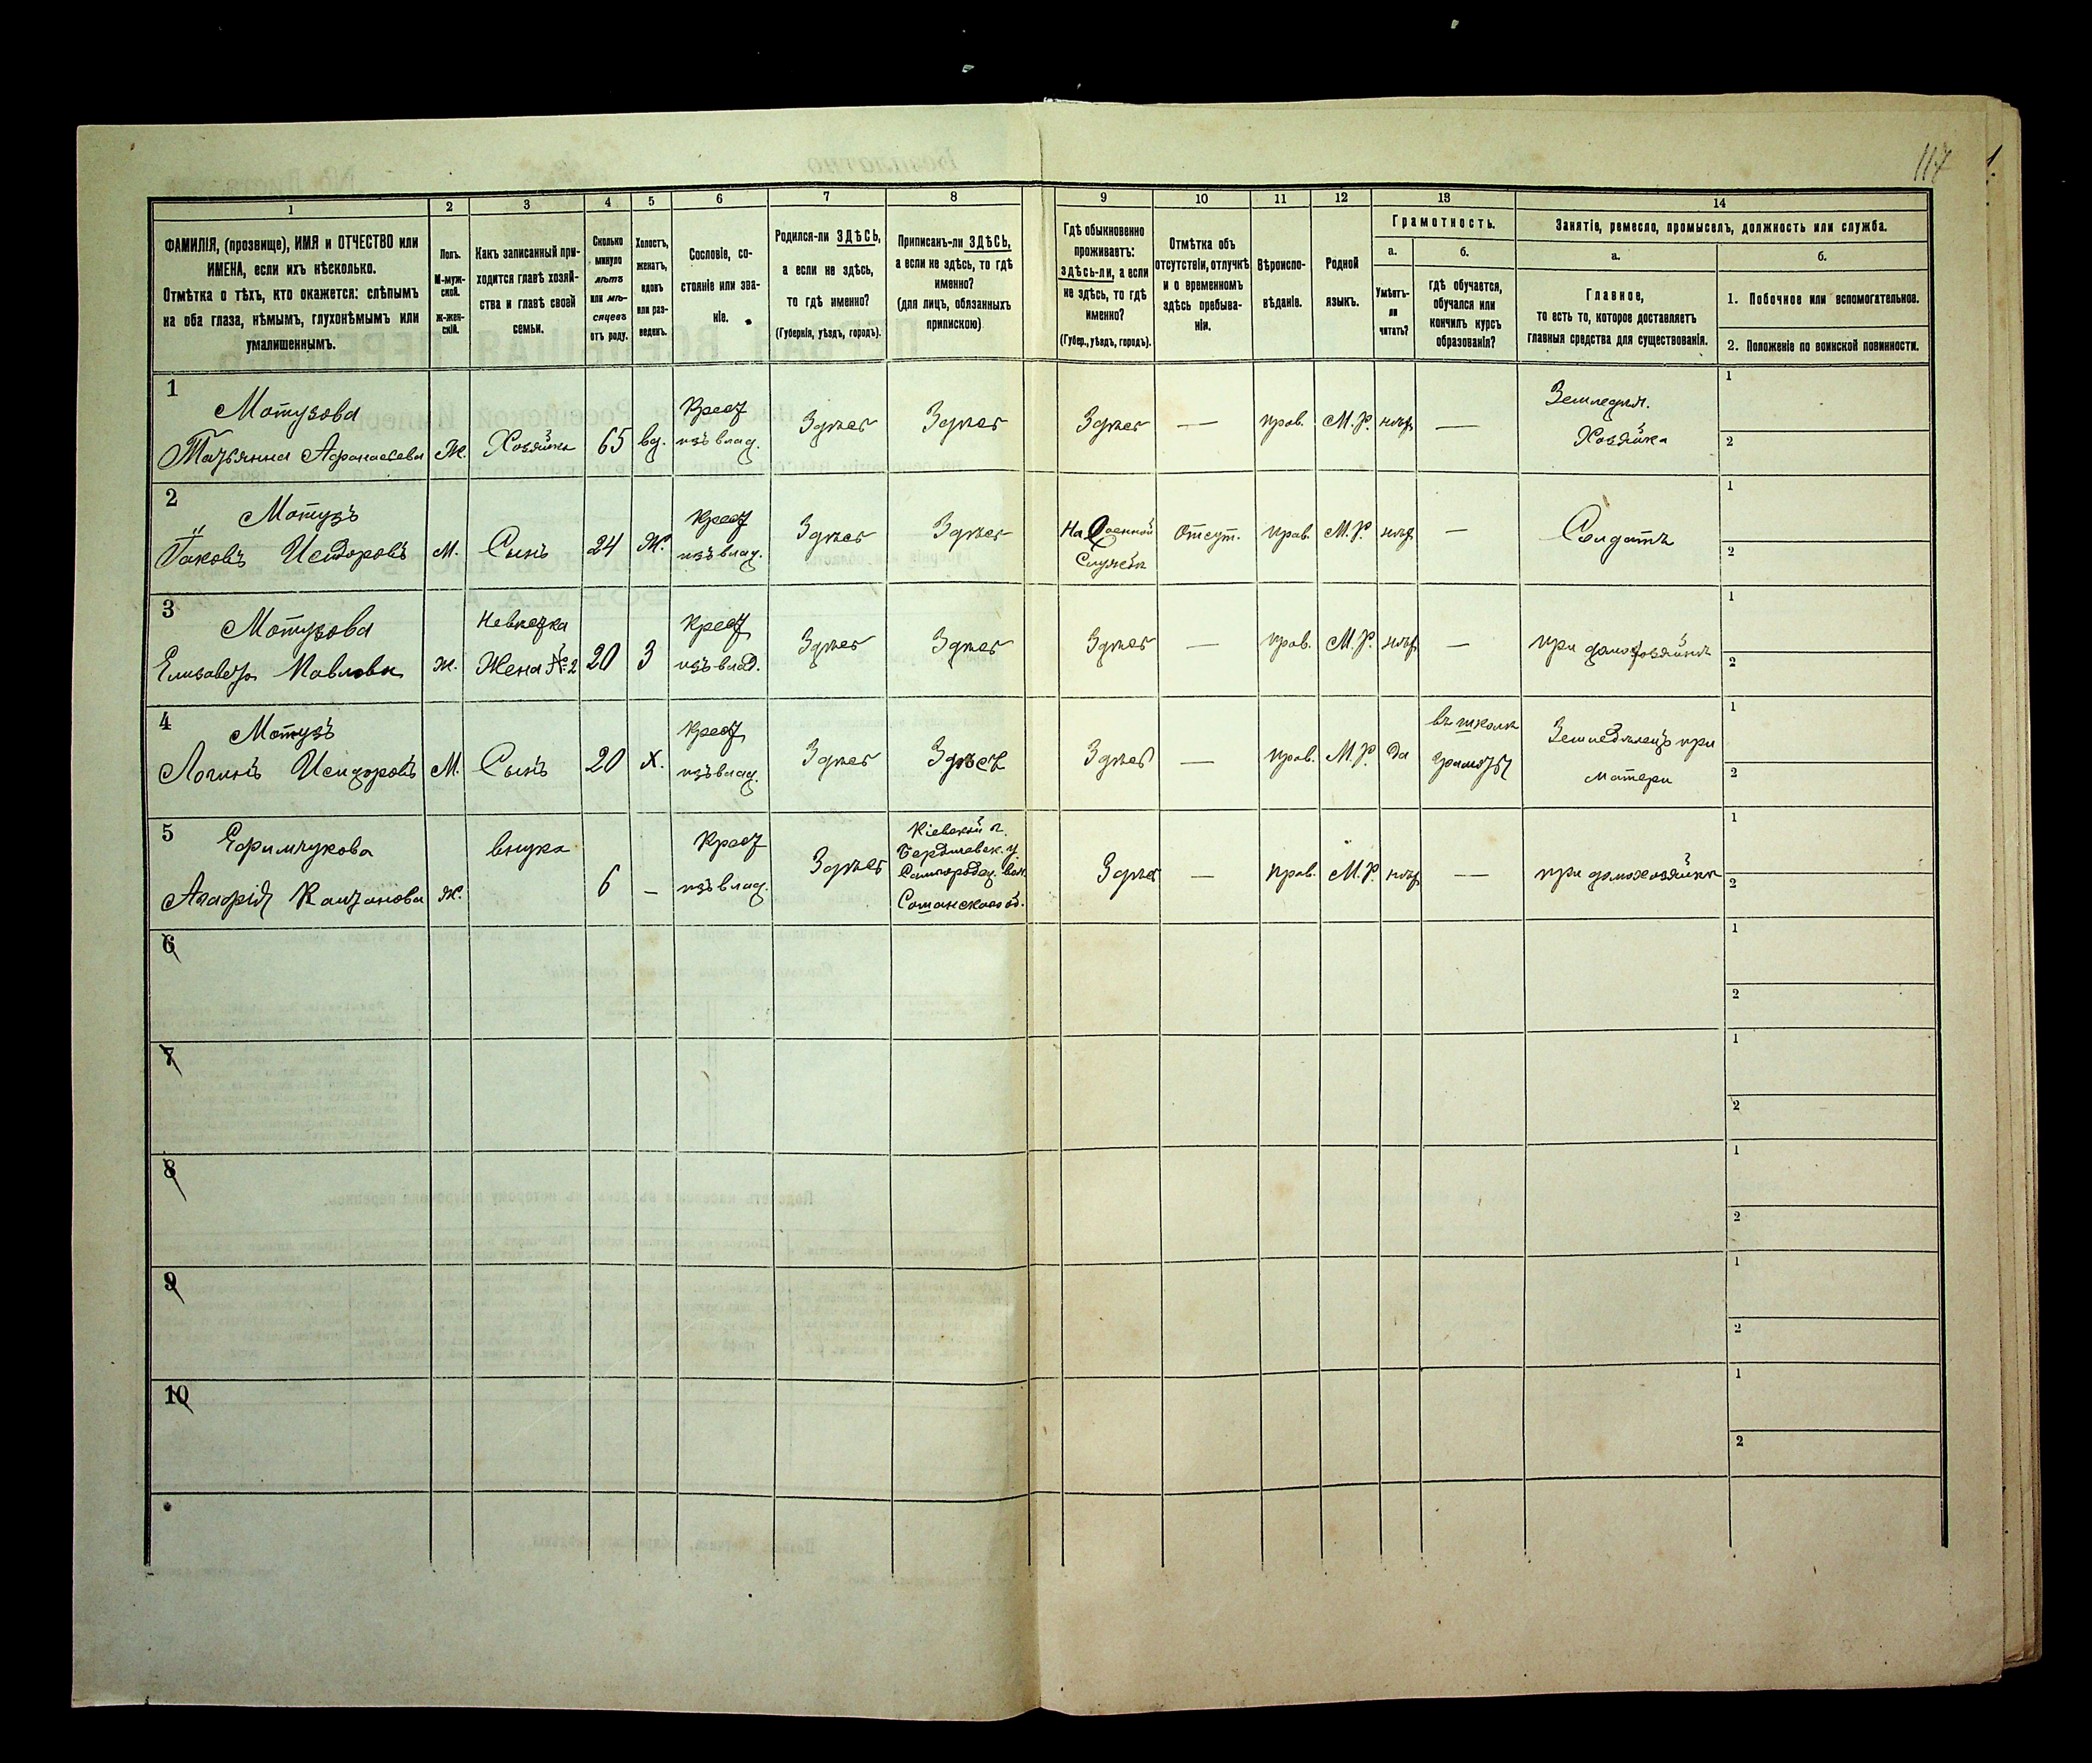 117
1
2
3
4
5
6
7
8
9
10
11
12
13
14
ФАМИЛІЯ, (прозвище), ИМЯ и ОТЧЕСТВО или
ИМЕНА, если ихъ нѣсколько.
Отмѣтка о тѣхъ, кто окажется: слѣпымъ
на оба глаза, нѣмымъ, глухонѣмымъ или
умалишеннымъ.
Полъ.
М-муж-
ской.
ж-жен-
скій.
Какъ записанный при-
ходится главѣ хозяй-
ства и главѣ своей
семьи.
Сколько
минуло
лѣтъ
или мѣ-
сяцевъ
отъ роду.
Холостъ,
женатъ,
вдовъ
или раз-
веденъ.
Сословіе, со-
стояніе или зва-
ніе.
Родился-ли ЗДѢСЬ,
а если не здѣсь,
то гдѣ именно?
(Губернія, уѣздъ, городъ).
Приписанъ-ли ЗДѢСЬ,
а если не здѣсь, то гдѣ
именно?
(для лицъ, обязанныхъ
припискою)
Гдѣ обыкновенно
проживаетъ:
здѣсь-ли, а если
не здѣсь, то гдѣ
именно?
(Губер., уѣздъ, городъ).
Отмѣтка объ
отсутствіи, отлучкѣ
и о временномъ
здѣсь пребыва-
ніи.
Вѣроиспо-
вѣданіе.
Родной
языкъ.
Грамотность.
а.
Умѣетъ-
ли
читать?
б.
гдѣ обучается,
обучался или
кончилъ курсъ
образованія?
Занятіе, ремесло, промыселъ, должность или служба.
а.
Главное,
то есть то, которое доставляетъ
главныя средства для существованія.
б.
1. Побочное или вспомогательное.
2. Положеніе по воинской повинности.
1
Мотузова
Татьянна Афанасьева
Ж.
Хозяйка
65
вд.
Крест
изъ влад.
Здѣсь
Здѣсь
Здѣсь
—
прав.
М.Р.
нѣт
—
Земледѣл.
Хозяйка
1
2
2
Мотузъ
Яковъ Исидоровъ
М.
Сынъ
24
Ж.
Крест
изъ влад.
Здѣсь
Здѣсь
На Военной
Службѣ
Отсут.
прав.
М.Р.
нѣт
—
Солдатъ
1
2
3
Мотузова
Елизавета Павлова
Ж.
Невѣстка
Жена №2
20
З
Крест
изъ влад.
Здѣсь
Здѣсь
Здѣсь
—
прав.
М.Р.
нѣт
—
при домохозяйкѣ
1
2
4
Мотузъ
Логинъ Исидоровъ
М.
Сынъ
20
Х.
Крест
изъ влад.
Здѣсь
Здѣсь
Здѣсь
—
прав.
М.Р.
Да
въ школѣ
грамоты
Земледѣлецъ при
матери
1
2
5
Ефимчукова
Агафія
Ж.
внука
6
—
Крест
изъ влад.
Здѣсь
Кіевской г.
Бердичевск. у.
Самгородец. вол.
Сошанского об.
Здѣсь
—
прав.
М.Р.
нѣт
—
при домохозяйкѣ
1
2
6
1
2
7
1
2
8
1
2
9
1
2
10
1
2